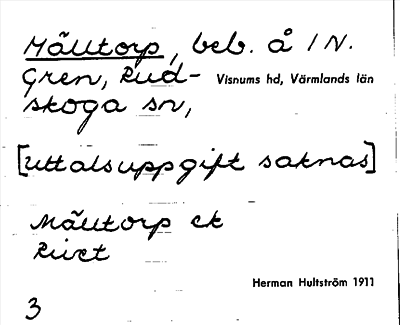 Mälltorp, beb. å 1 N.
Gren, Rud- Visnums hd, Värmlands län
skoga sn,
[Uttalsuppgift saknas]
Mälltorp ek
Herman Hultström 1911
3